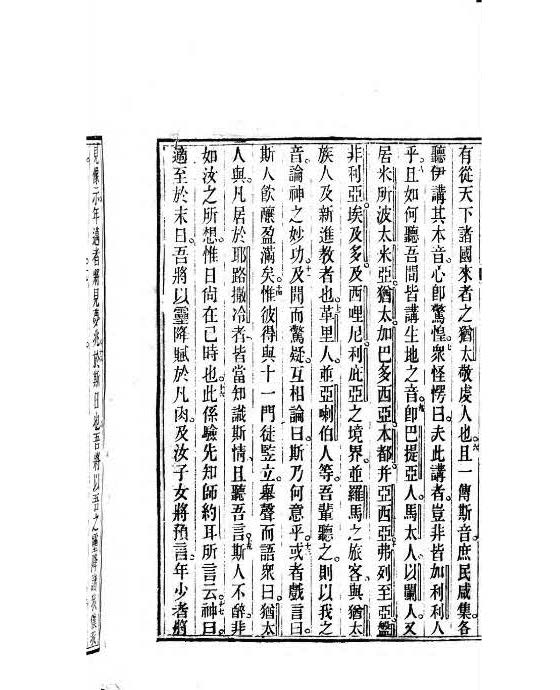 有從天下諸國來者之猶太敬虔人也六且一傳斯音庶民咸集各
聽伊講其本音心即驚惶七衆怪愕曰夫此講者豈非皆加利利人
乎八且如何聽吾間皆講生地之音九即巴提亞人馬太人以闌人又
居米所波太米亞猶太加巴多西亞本都十并亞西亞弗列至亞
非利亞埃及多及西哩尼利庇亞之境界並羅馬之旅客與猶太
族人及新進教者也十一革里人並亞喇伯人等吾輩聽之則以我之
音論神之妙功及聞而驚疑互相論曰斯乃何意乎或者戲言曰
斯人飲釀盈滿矣惟彼得與十一門徒竪立舉聲而語衆曰猶太
人與凡居於耶路撒冷者皆當知識斯情且聽吾言斯人不醉非
如汝之所想惟日尚在己時也此係驗先知師約耳所言云神曰
適至於末日吾將以靈降賦於凡肉及汝子女將預言年少者將
見像示年邁者將見夢兆於斯日也吾將以吾之靈降